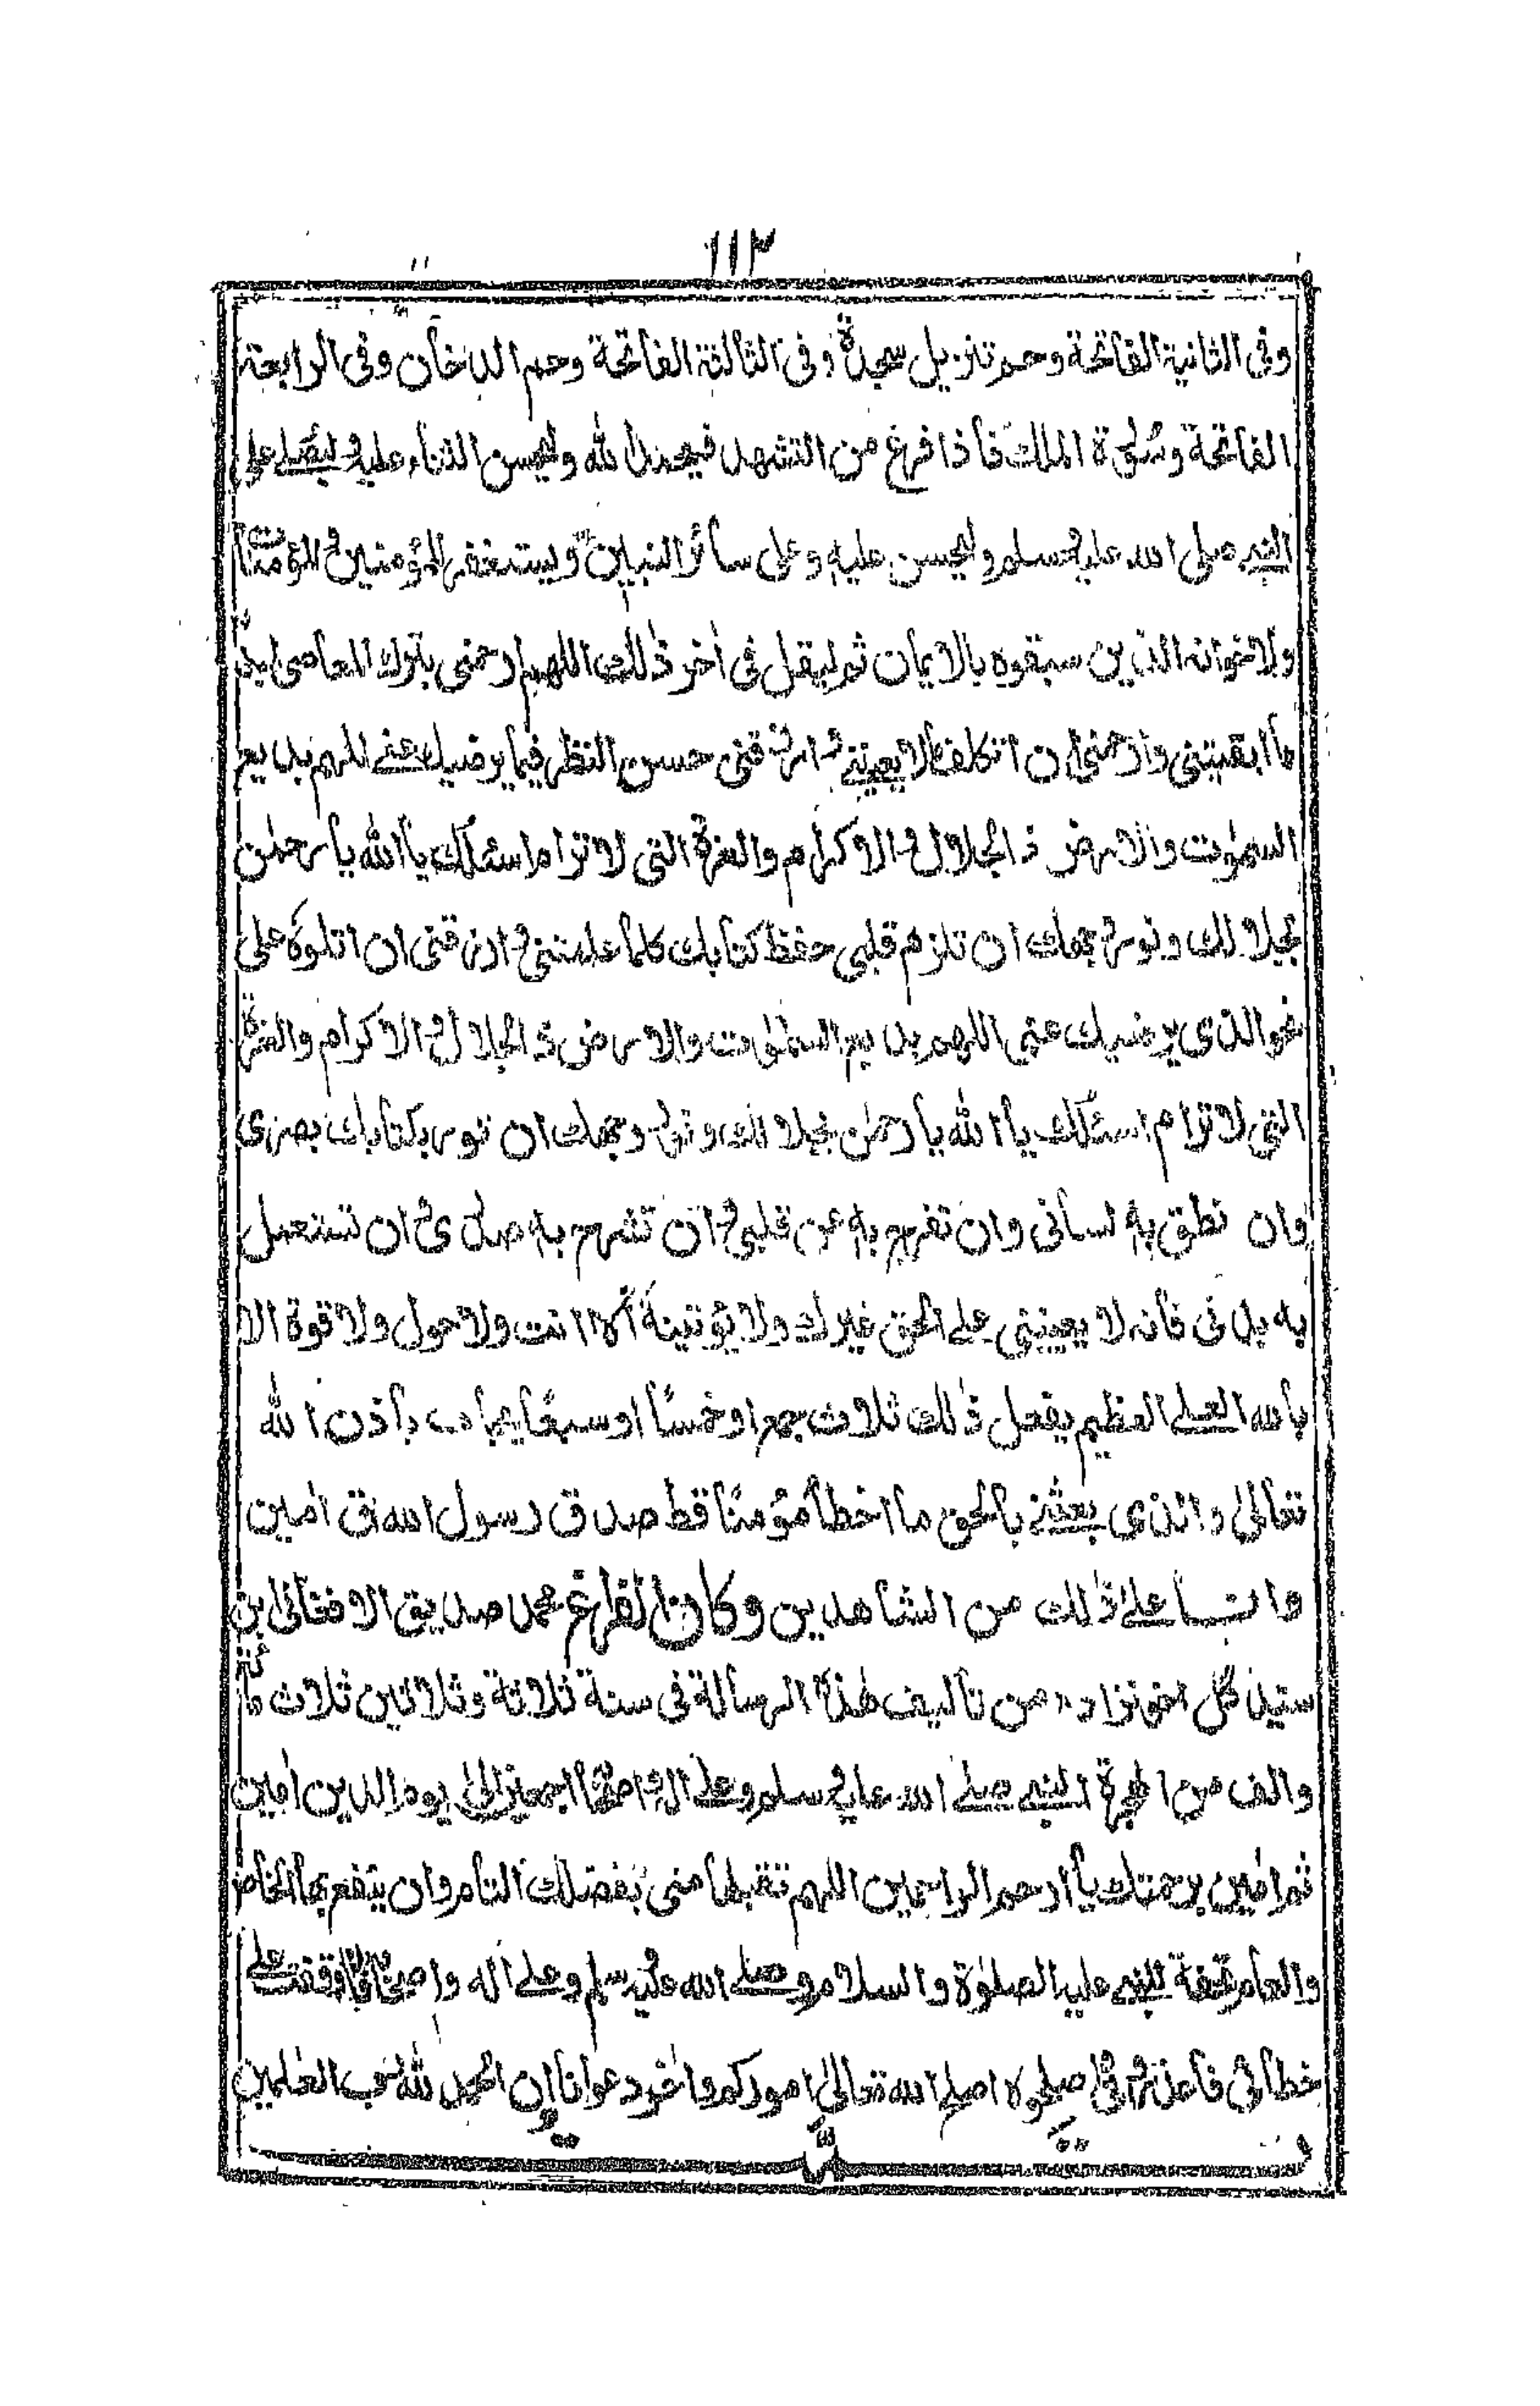 ١١٢
وفى الثانية الفاتحة وحم تنزيل سجدة وفى الثالثة الفاتحة وحم الدخان وفى الرابعة
الفاتحة وسورة الملك فاذا فرغ من التشهد فيحمد الله وليحسن الثناء عليه وليصل على
النبى صلى الله عليه وسلم وليحسن عليه وعلى سائر النبيين ويستغفر للمؤمنين والمؤمنات
ولاخوانه الذين سبقوه بالايمان ثم ليقل فى اخر ذٰلك اللهم ارحمنى بترك المعاصى ابدا
ما ابقيتنى وارحمنى ان اتكلف مالا يعنينى وارزقنى حسن النظر فيما يرضيك عنى اللهم بديع
السمٰوٰت والارض ذا الجلال والاكرام والعزة التى لا ترام اسئلك يا الله يا رحمٰن
بجلالك ونور وجهك ان تلزم قلبى حفظ كتابك كما علمتنى وارزقنى ان اتلوه على
نحو الذى يرضيك عنى اللهم بديع السمٰوٰت والارض ذا الجلال والاكرام والعزة
التى لا ترام اسئلك يا الله يا رحمٰن بجلالك ونور وجهك ان تنور بكتابك بصرى
وان تطق به لسانى وان تفرج به عن قلبى وان تشرح به صدرى وان تستعمل
به بدنى فانه لا يعيننى على الحق غيرك ولا يؤتينه الا انت ولا حول ولا قوة الا
بالله العلى العظيم يفعل ذٰلك ثلاث جمع او خمسًا او سبعًا يجاب باذن الله
تعالىٰ والذى بعثنى بالحق ما اخطأ مؤمنًا قط صدق رسول الله امين
وانا علىٰ ذٰلك من الشاهدين وكان الفراغ محمد صديق الافغانى بن
من تاليف هٰذه الرسالة فى سنة ثلاثة وثلاثين ثلاث مائة
والف من الهجرة النبى صلى الله عليه وسلم وعلى اله واصحابه اجمعين الىٰ يوم الدين اٰمين
ثم اٰمين برحمتك يا ارحم الراحمين اللهم تقبلها منى بفضلك التام وان ينفع بها الخاص
والعام تحفة للنبى عليه الصلوٰة والسلام وصلى الله عليه وسلم وعلى اله واصحابه وقفت على
خطائى صلحوه اصلح الله تعالىٰ اموركم واٰخر دعوانا ان الحمد لله رب العٰلمين